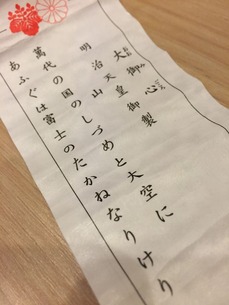 大御心
おおみごころ
明治天皇御製
萬代の国のしづめと大空に
あふぐは富士のたかねなりけり